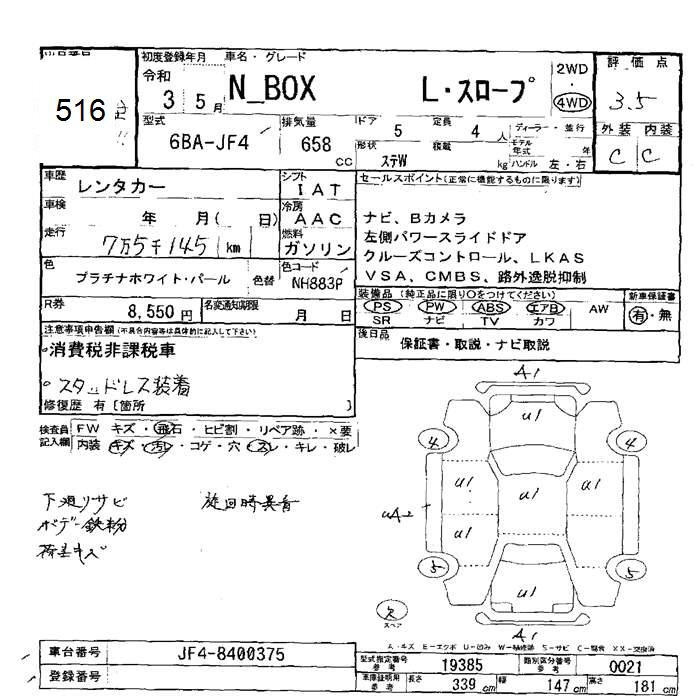 初度登録年月 車名・グレード 評価点
516
令和 3年 5月
N_BOX L・スロープ
2WD・4WD
3.5
型式 6BA-JF4
排気量 658 cc
ドア 5 定員 4人
形状 ステW 積載 kg
ディーラー・並行
モデル年式 年
ハンドル 左・右
外装 内装
C C
車歴 レンタカー
シフト IAT
セールスポイント(正常に機能するものに限ります)
車検 年 月( 日)
冷房 AAC
走行 7万5千145 km
燃料 ガソリン
ナビ、Bカメラ
左側パワースライドドア
クルーズコントロール、LKAS
VSA、CMBS、路外逸脱抑制
色 プラチナホワイト・パール 色替
色コード NH883P
装備品(純正品に限り○をつけてください) 新車保証書
PS PW ABS エアB AW 有・無
SR ナビ TV カワ
R券 8,550円
名変通知期限 月 日
後日品 保証書・取説・ナビ取説
注意事項申告欄(不具合内容等は具体的に記入して下さい)
・消費税非課税車
・スタッドレス装着
修復歴 有[箇所 ]
検査員記入欄
FW キズ・飛石・ヒビ割・リペア跡・×要
内装 キズ・汚レ・コゲ・穴・スレ・キレ・破レ
下廻りサビ 旋回時異音
ボデー鉄粉
荷室キズ
A1
U1
4 4
U1 U1 U1
UA2
U1
5 5
U1
A1
スペア
A・キズ E・エクボ U・凹み W・補修跡 S・サビ C・腐食 XX・交換済
車台番号 JF4-8400375
登録番号
型式指定番号 参考 19385
類別区分番号 参考 0021
車庫証明用 参考 長さ 339 cm 幅 147 cm 高さ 181 cm